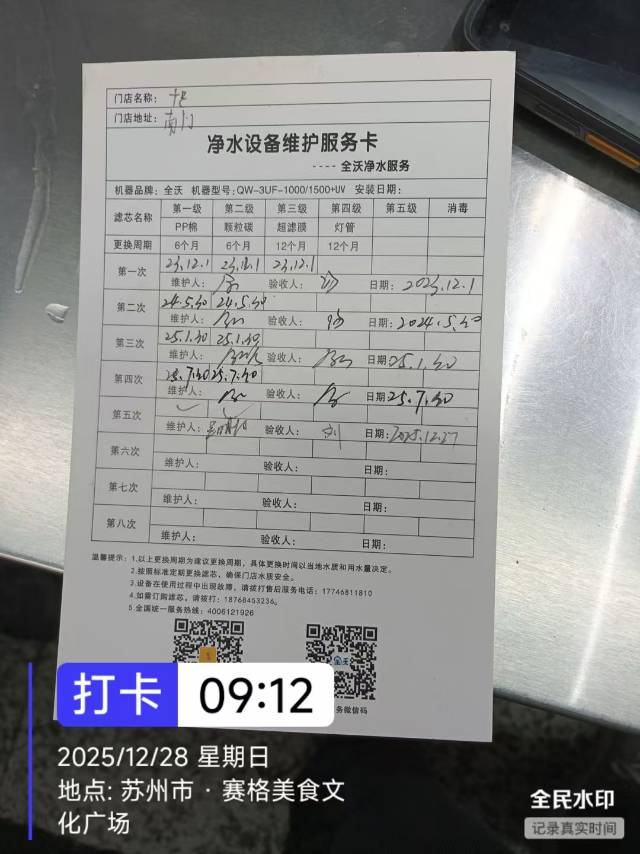 门店名称：
门店地址：南门
净水设备维护服务卡
---- 全沃净水服务
机器品牌：全沃 机器型号：QW-3UF-1000/1500+UV 安装日期：
滤芯名称 第一级 第二级 第三级 第四级 第五级 消毒
PP棉 颗粒碳 超滤膜 灯管
更换周期 6个月 6个月 12个月 12个月
第一次 23.12.1 23.12.1 23.12.1
维护人： 验收人： 日期：2023.12.1
第二次 24.5.30 24.5.30
维护人： 验收人： 日期：2024.5.30
第三次 25.1.30 25.1.30
维护人： 验收人： 日期：25.1.30
第四次 25.7.30 25.7.30
维护人： 验收人： 日期：25.7.30
第五次
维护人： 验收人： 日期：2025.12.27
第六次
维护人： 验收人： 日期：
第七次
维护人： 验收人： 日期：
第八次
维护人： 验收人： 日期：
温馨提示：1.以上更换周期为建议更换周期，具体更换时间以当地水质和用水量决定。
2.按照标准定期更换滤芯，确保门店水质安全。
3.设备在使用过程中出现故障，请拨打售后服务电话：17746811810
4.如需订购滤芯，请拨打：18768453236。
5.全国统一服务热线：4006121926
务微信码
打卡 09:12
2025/12/28 星期日
地点: 苏州市 · 赛格美食文
化广场
全民水印
记录真实时间